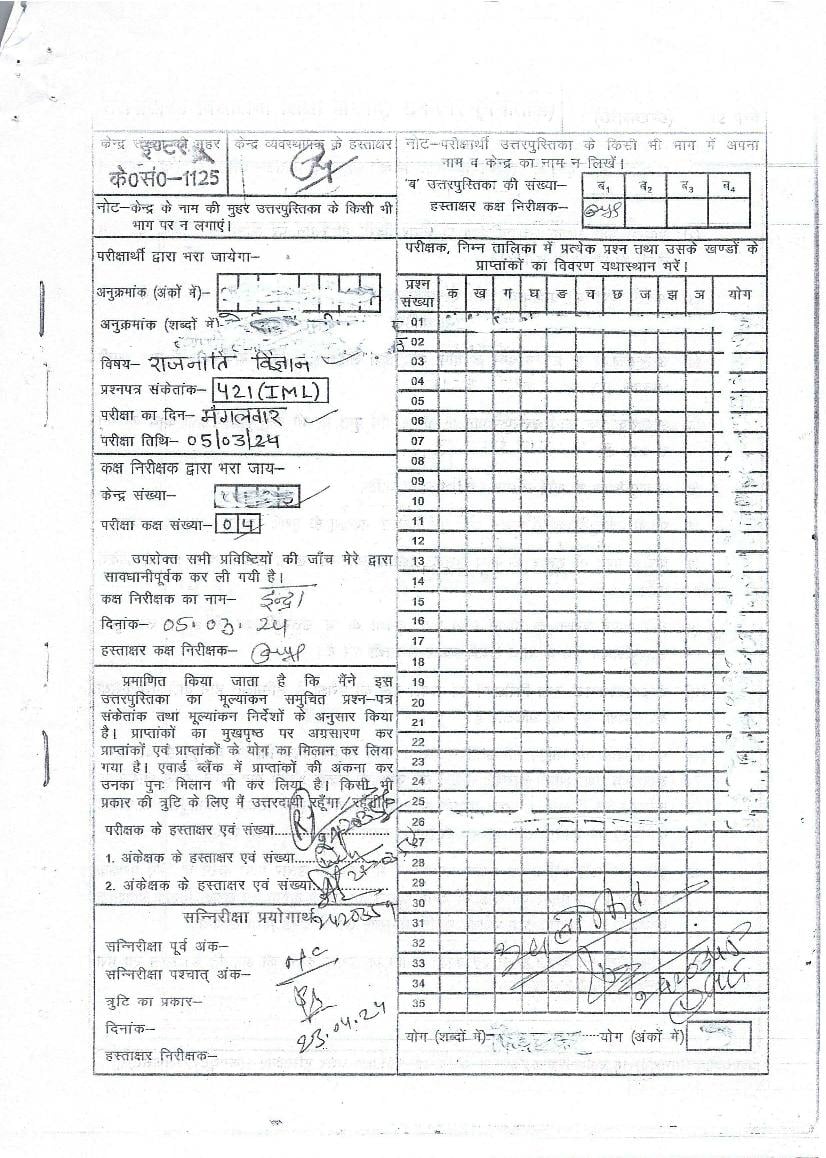 केन्द्र संख्या की मुहर
इण्टर
के0सं0-1125
केन्द्र व्यवस्थापक के हस्ताक्षर
नोट-केन्द्र के नाम की मुहर उत्तरपुस्तिका के किसी भी
भाग पर न लगाएं।
नोट-परीक्षार्थी उत्तरपुस्तिका के किसी भी भाग में अपना
नाम व केन्द्र का नाम न लिखें।
'ब' उत्तरपुस्तिका की संख्या- ब₁ ब₂ ब₃ ब₄
हस्ताक्षर कक्ष निरीक्षक-
परीक्षार्थी द्वारा भरा जायेगा-
अनुक्रमांक (अंकों में)-
अनुक्रमांक (शब्दों में)
विषय- राजनीति विज्ञान
प्रश्नपत्र संकेतांक- 421(IML)
परीक्षा का दिन- मंगलवार
परीक्षा तिथि- 05/03/24
कक्ष निरीक्षक द्वारा भरा जाय-
केन्द्र संख्या-
परीक्षा कक्ष संख्या- 04
उपरोक्त सभी प्रविष्टियों की जाँच मेरे द्वारा
सावधानीपूर्वक कर ली गयी है।
कक्ष निरीक्षक का नाम- इन्द्रा
दिनांक- 05.03.24
हस्ताक्षर कक्ष निरीक्षक-
प्रमाणित किया जाता है कि मैंने इस
उत्तरपुस्तिका का मूल्यांकन समुचित प्रश्न-पत्र
संकेतांक तथा मूल्यांकन निर्देशों के अनुसार किया
है। प्राप्तांकों का मुखपृष्ठ पर अग्रसारण कर
प्राप्तांकों एवं प्राप्तांकों के योग का मिलान कर लिया
गया है। एवार्ड ब्लैंक में प्राप्तांकों की अंकना कर
उनका पुनः मिलान भी कर लिया है। किसी भी
प्रकार की त्रुटि के लिए मैं उत्तरदायी रहूँगा/रहूँगी।
परीक्षक के हस्ताक्षर एवं संख्या
1. अंकेक्षक के हस्ताक्षर एवं संख्या
2. अंकेक्षक के हस्ताक्षर एवं संख्या
2420359
सन्निरीक्षा प्रयोगार्थ
सन्निरीक्षा पूर्व अंक-
सन्निरीक्षा पश्चात् अंक- NC
त्रुटि का प्रकार-
दिनांक- 23.04.24
हस्ताक्षर निरीक्षक-
परीक्षक, निम्न तालिका में प्रत्येक प्रश्न तथा उसके खण्डों के
प्राप्तांकों का विवरण यथास्थान भरें।
प्रश्न संख्या क ख ग घ ङ च छ ज झ ञ योग
01
02
03
04
05
06
07
08
09
10
11
12
13
14
15
16
17
18
19
20
21
22
23
24
25
26
27
28
29
30
31
32
33
34
35
अवलोकित
2420345
योग (शब्दों में)- योग (अंकों में)